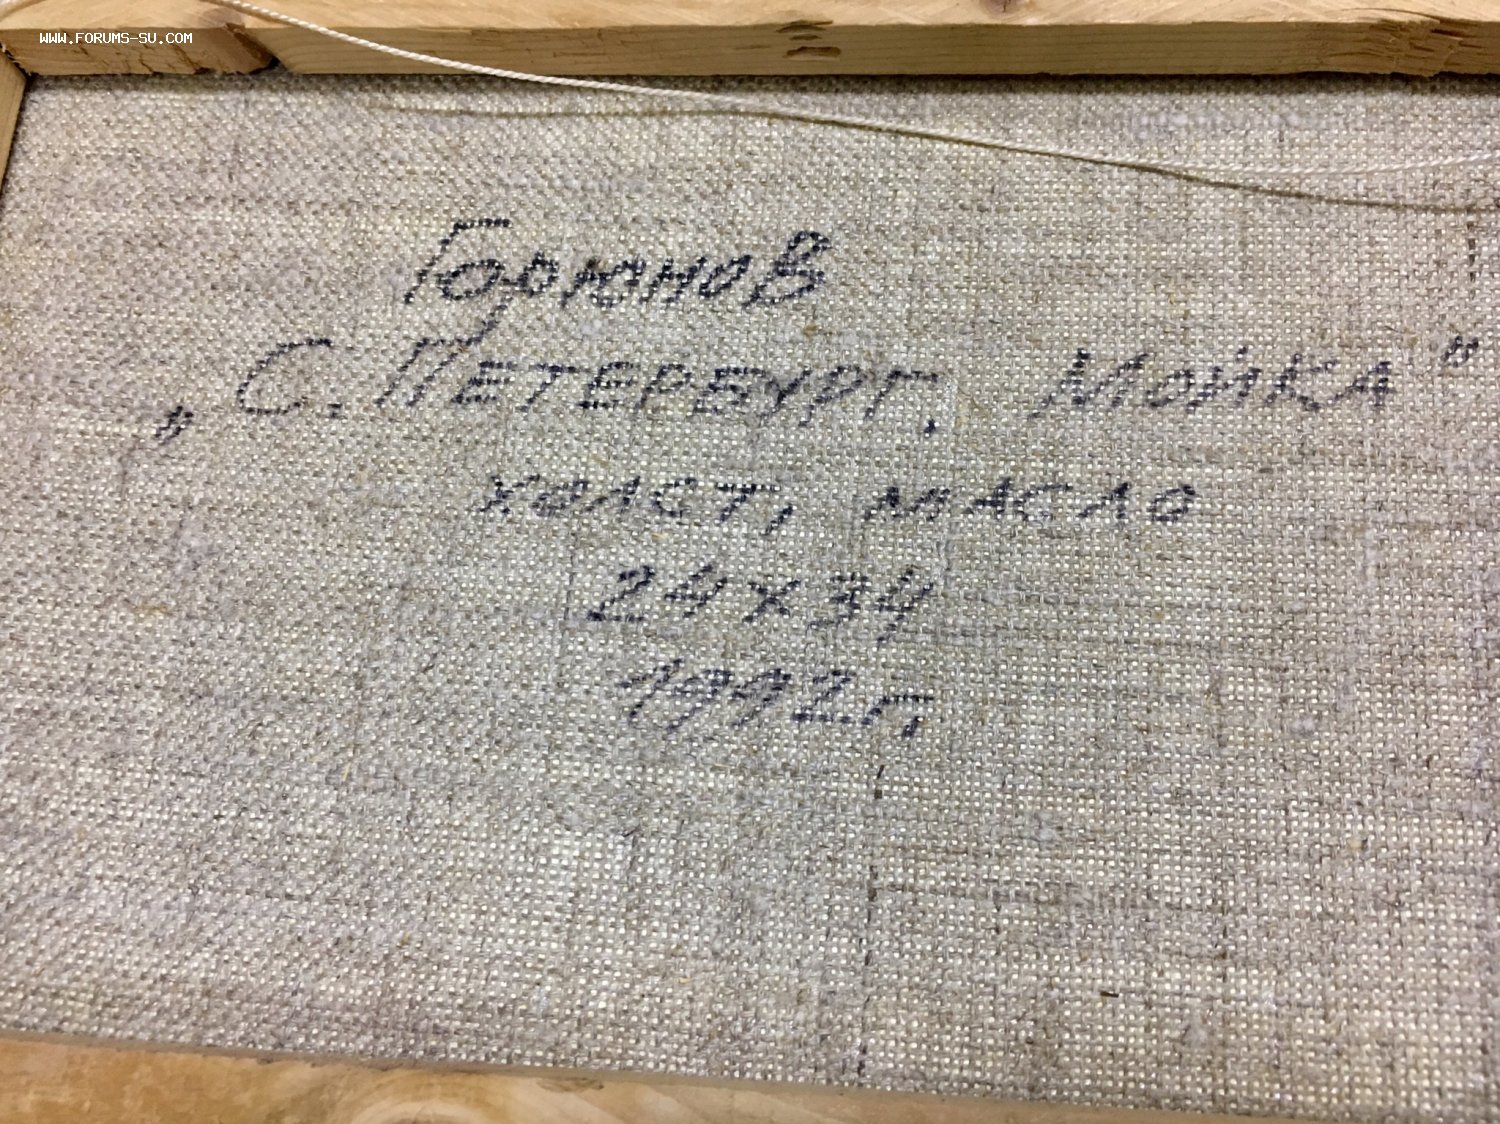 WWW.FORUMS-SU.COM
Горюнов
„С. Петербург. Мойка"
холст, масло
24x34
1992г.